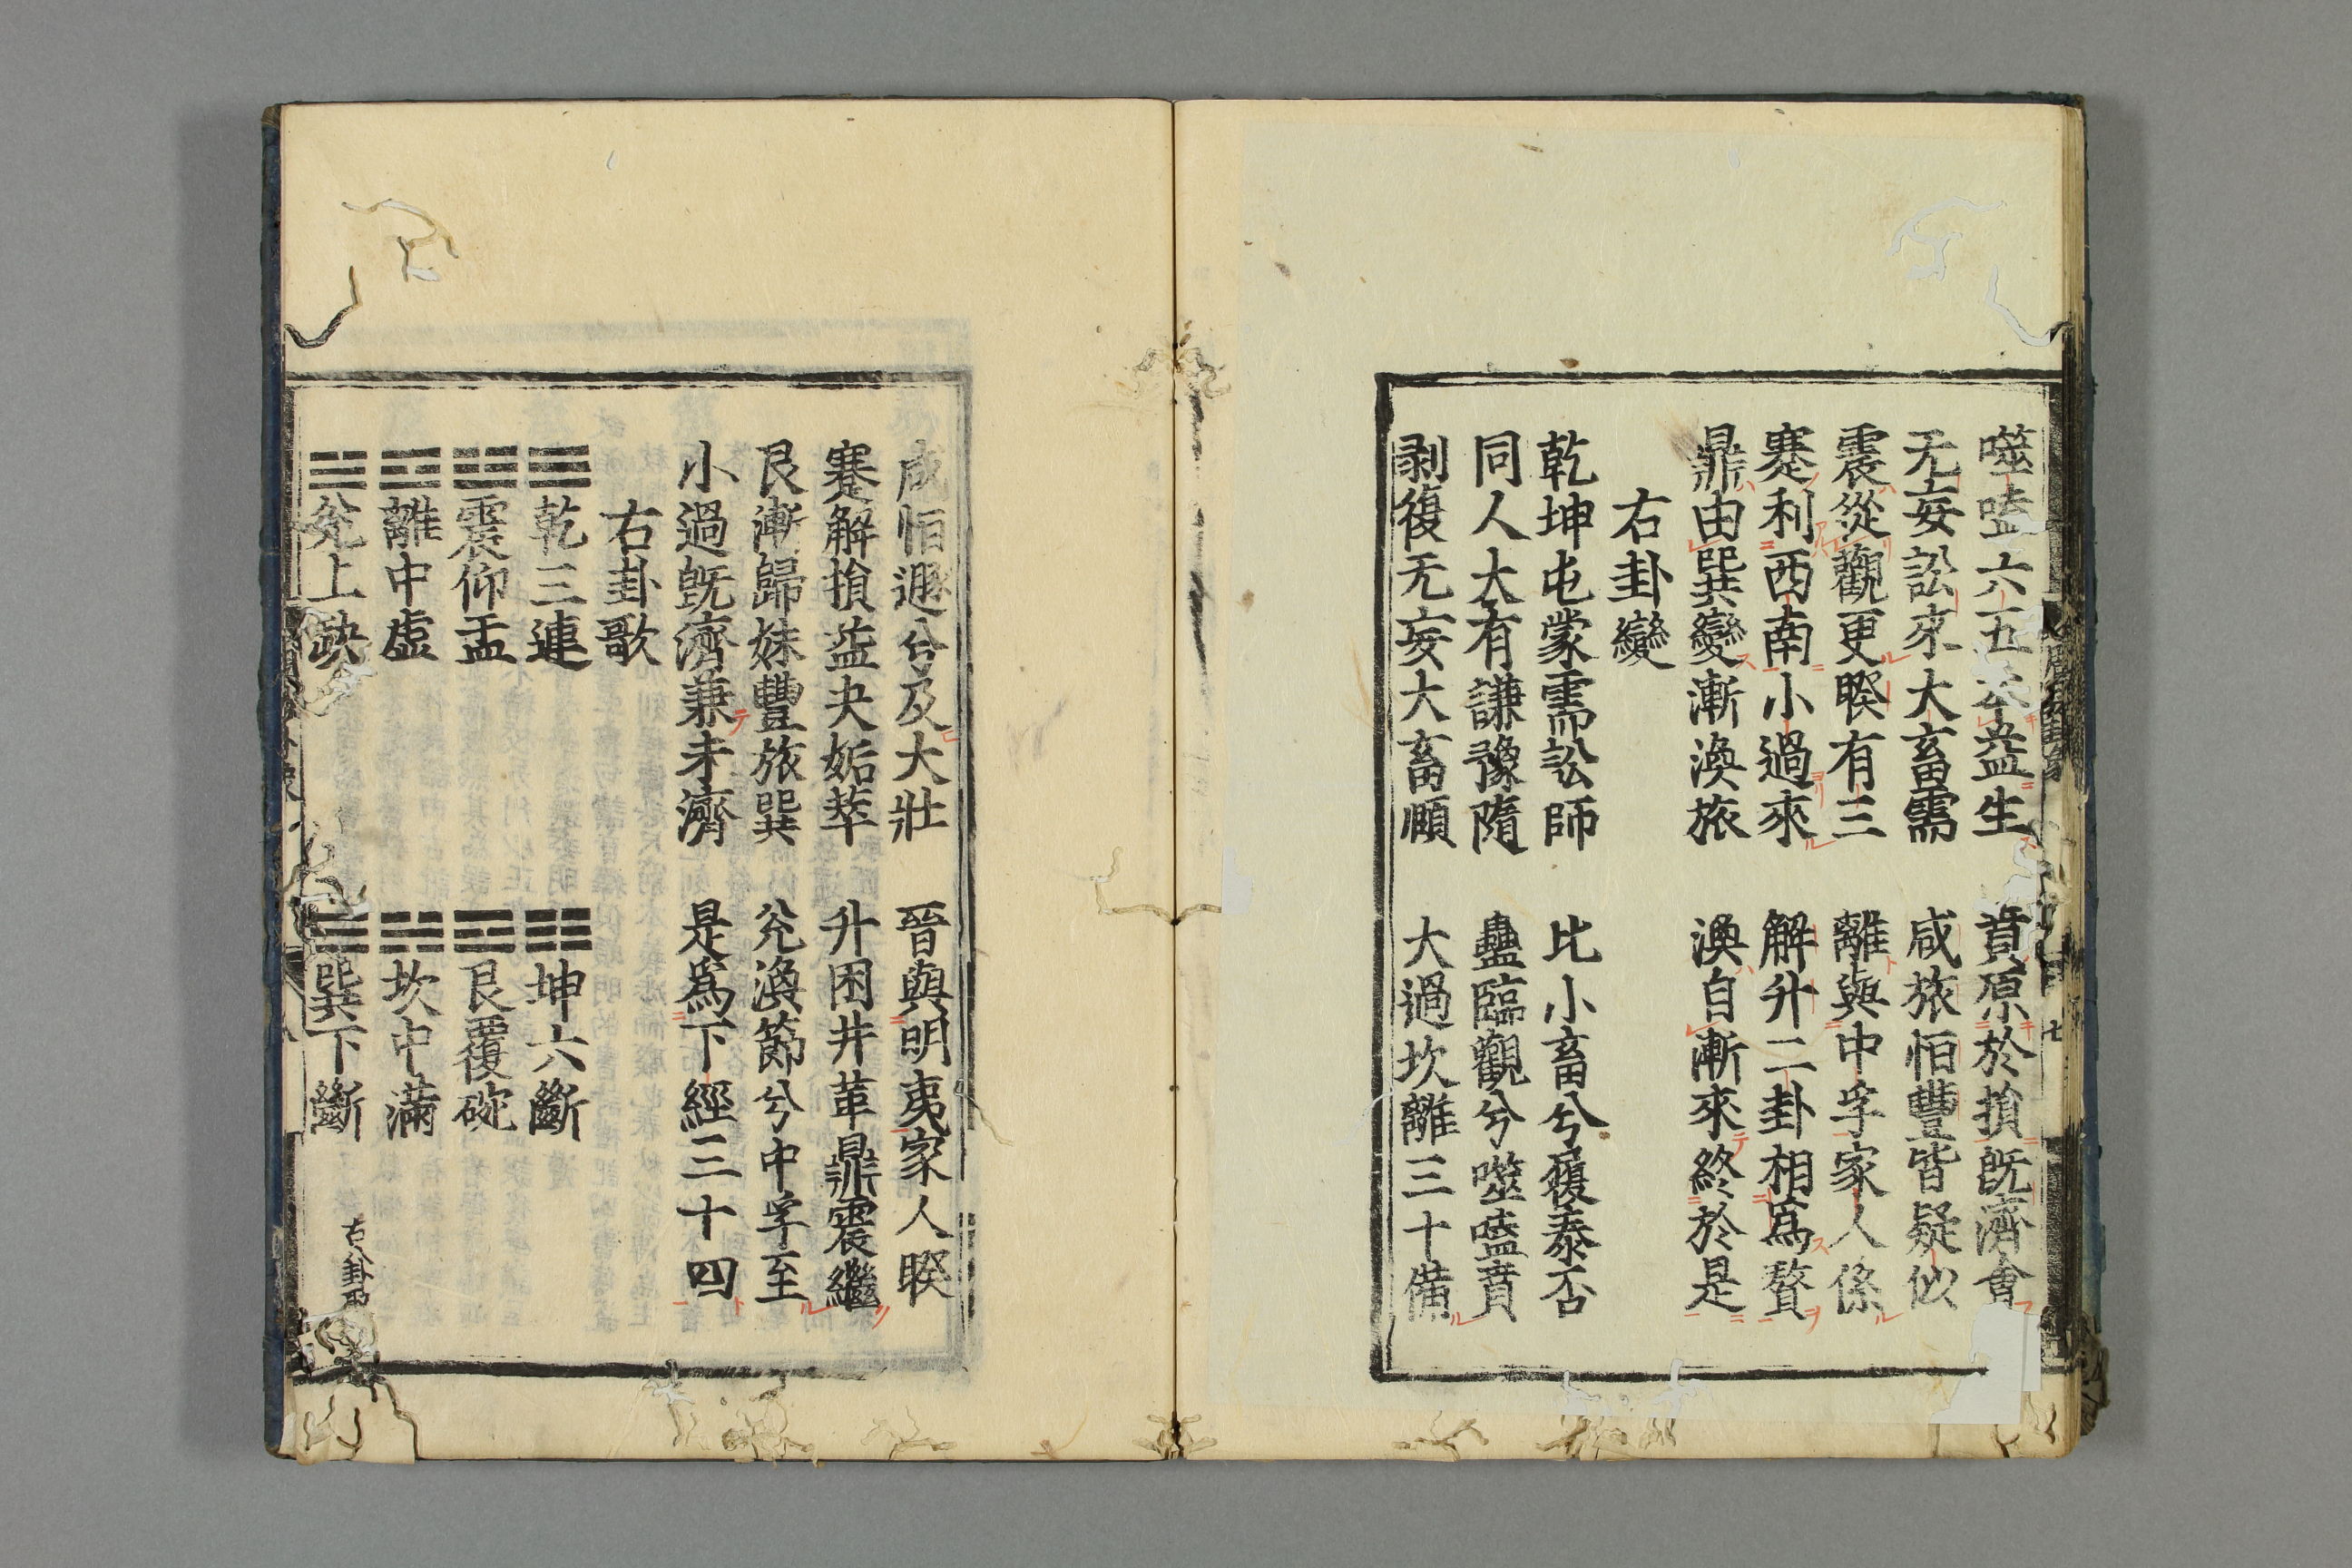 噬嗑六五本益生　賁原於損旣濟會
无妄訟來大畜需　咸旅恒豐皆疑似
震從觀更睽有三　離與中孚家人係
蹇利西南小過來　解升二卦相爲贅
鼎由巽變漸渙旅　渙自漸來終於是
右卦變
乾坤屯蒙需訟師　比小畜兮履泰否
同人大有謙豫隨　蠱臨觀兮噬嗑賁
剥復无妄大畜頤　大過坎離三十備
咸恒遯兮及大壯　晉與明夷家人睽
蹇解損益夬姤萃　升困井革鼎震繼
艮漸歸妹豐旅巽　兊渙節兮中孚至
小過旣濟兼未濟　是爲下經三十四
右卦歌
☰乾三連　☷坤六斷
☳震仰盂　☶艮覆碗
☲離中虛　☵坎中滿
☱兊上缺　☴巽下斷
右八卦